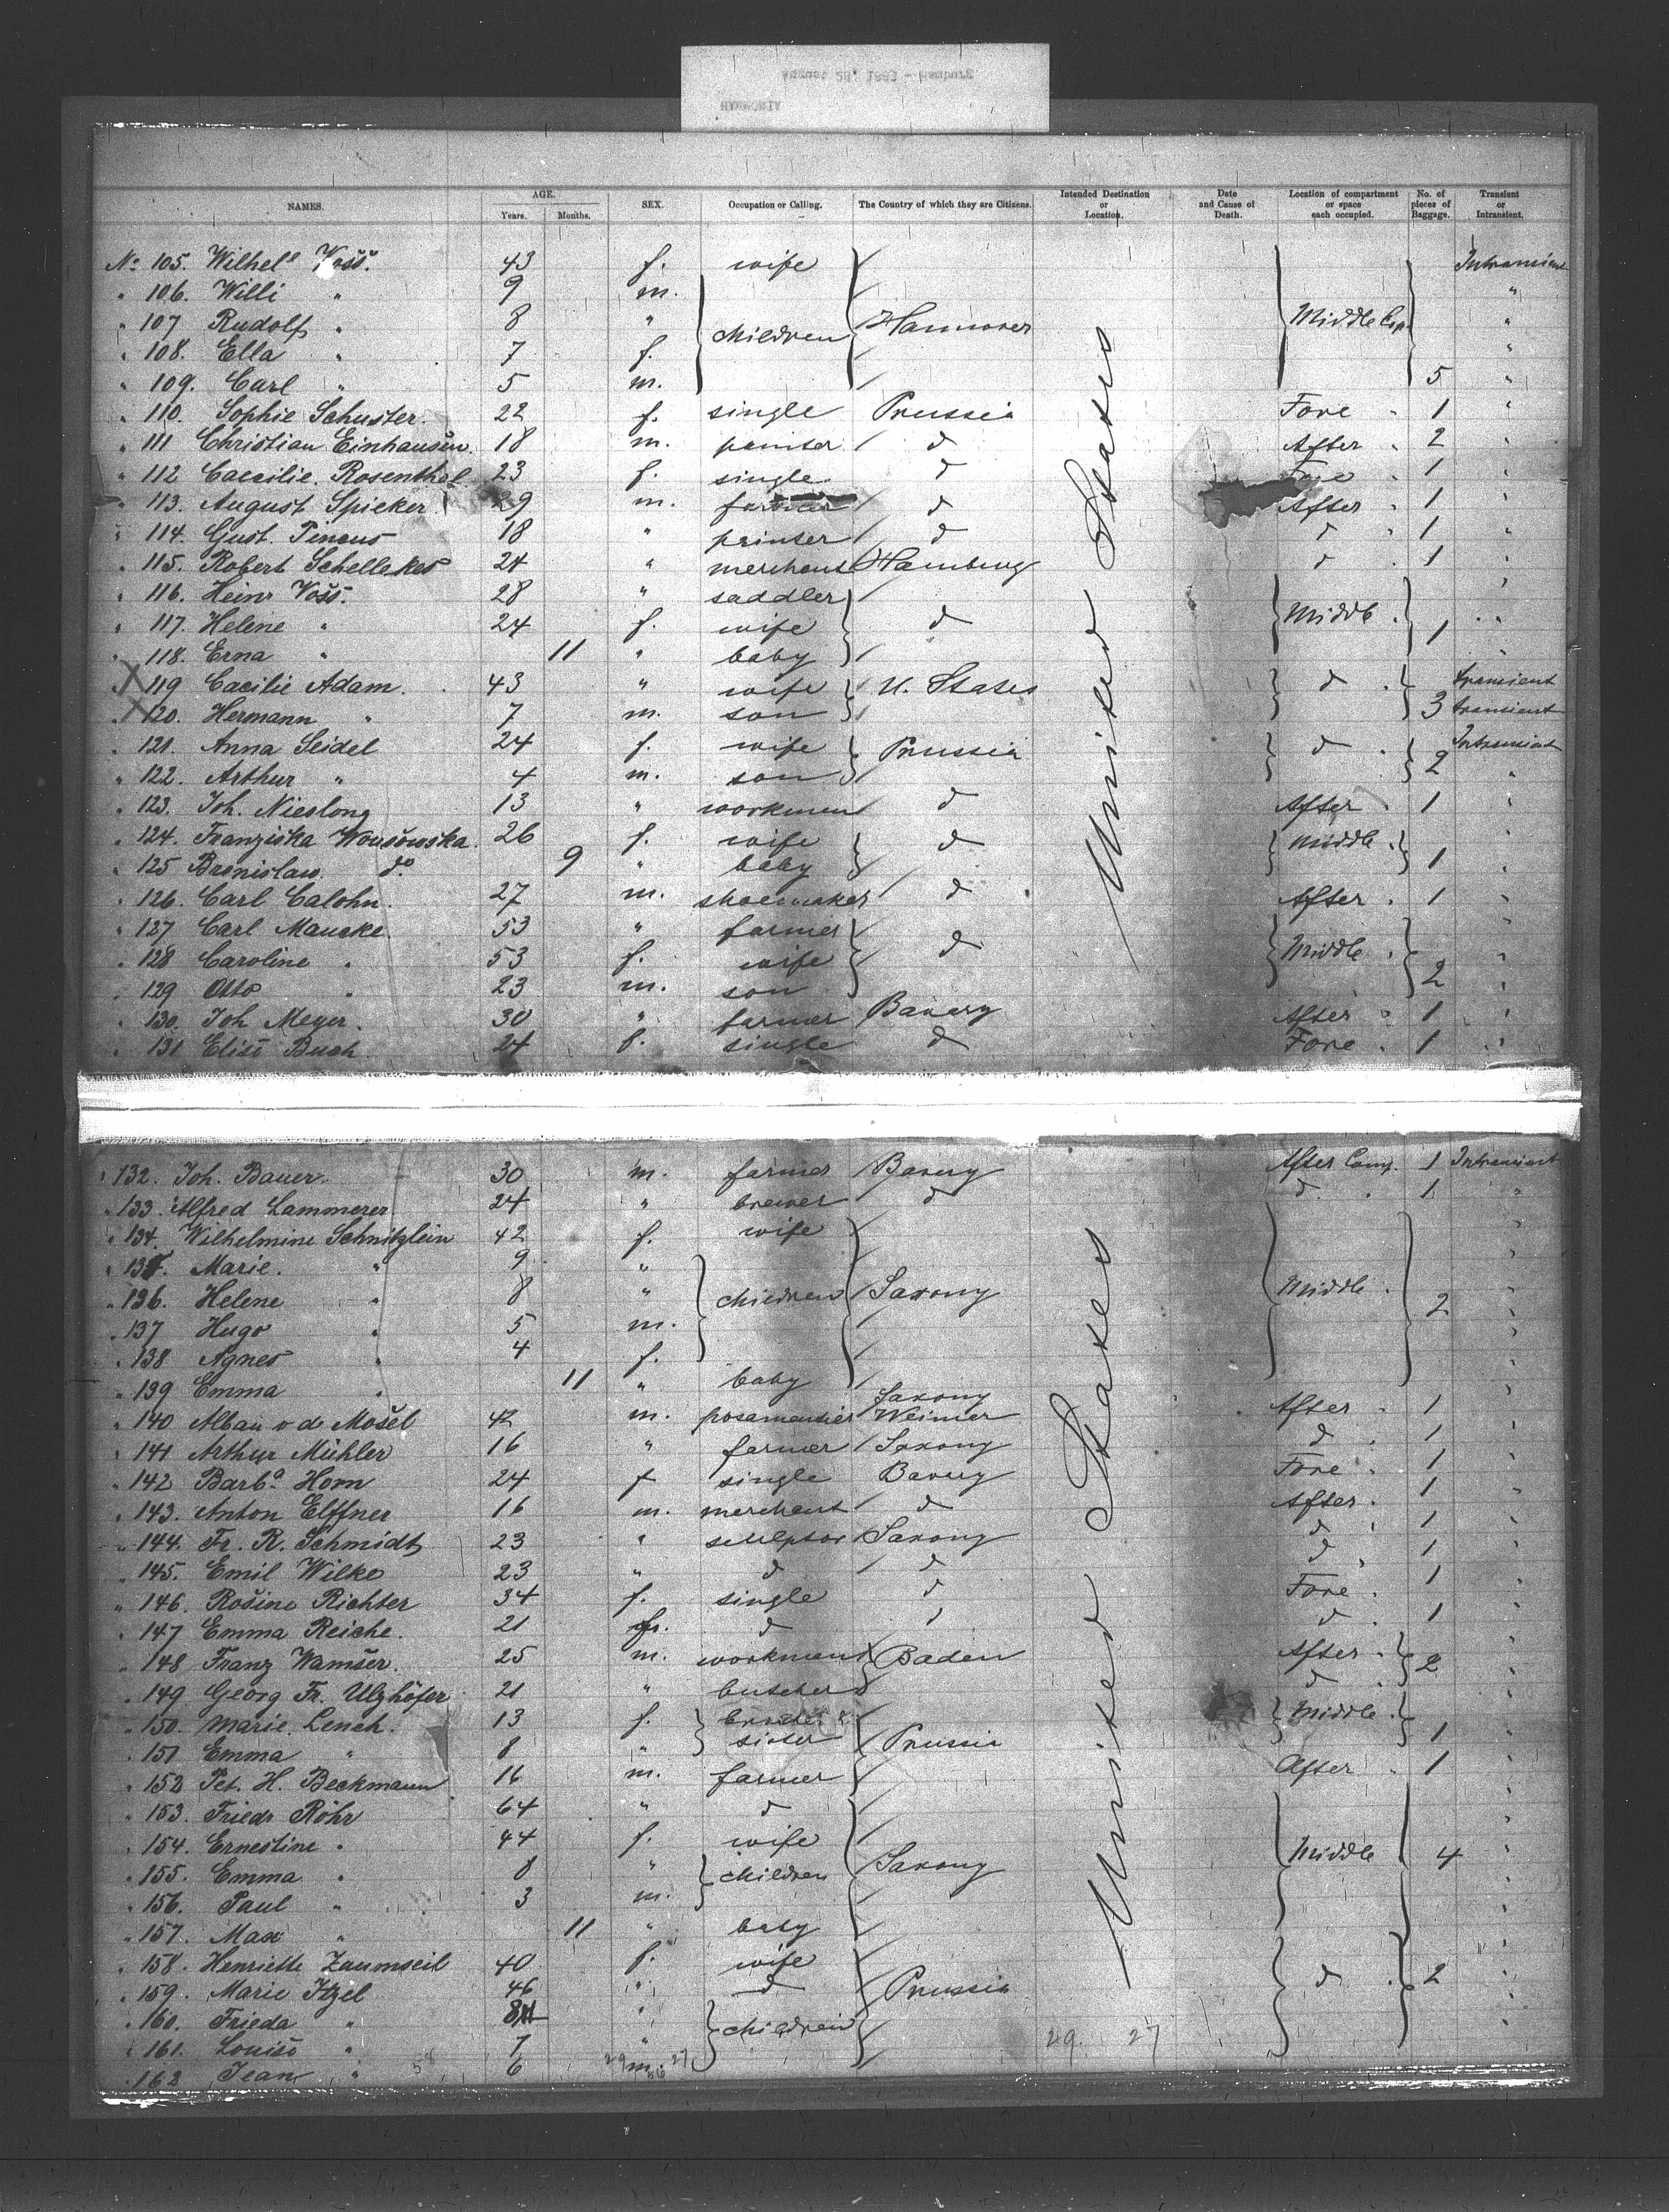 August 28, 1883 - Hamburg
HAMMONIA
NAMES. AGE. Years. Months. SEX. Occupation or Calling. The Country of which they are Citizens. Intended Destination or Location. Date and Cause of Death. Location of compartment or space each occupied. No. of pieces of Baggage. Transient or Intransient.
No 105. Wilhele Voss. 43 f. wife Intransient
" 106. Willi " 9 m. "
" 107 Rudolf " 8 " children Hannover Middle Cop. "
" 108. Ella " 7 f. "
" 109. Carl " 5 m. 5 "
" 110. Sophie Schuster. 22 f. single Prussia Fore " 1 "
" 111 Christian Einhausen. 18 m. painter d After " 2 "
" 112 Caecilie Rosenthal. 23 f. single d Fore " 1 "
" 113. August Spieker. 29 m. farmer d After " 1 "
" 114. Gust. Pincus 18 " painter d d " 1 "
" 115. Robert Schellekes 24 " merchant Hamburg d " 1 "
" 116. Heinr Voss. 28 " saddler "
" 117. Helene " 24 f. wife d Middle " 1 "
" 118. Erna " 11 " baby "
X 119 Cacilie Adam. 43 " wife U. States d " transient
X 120. Hermann " 7 m. son 3 transient
" 121. Anna Seidel 24 f. wife Prussia d " 2 Intransient
" 122. Arthur " 4 m. son "
" 123. Joh. Nieslong 13 " workmen d After " 1 "
" 124. Franziska Wousowska. 26 f. wife d Middle " "
" 125 Bronislaw. do. 9 " baby 1 "
" 126. Carl Calohn. 27 m. shoemaker d After " 1 "
" 127 Carl Maucke. 53 " farmer "
" 128 Caroline " 53 f. wife d Middle " "
" 129 Otto " 23 m. son 2 "
" 130. Joh Meyer. 30 " farmer Bavery After " 1 "
" 131 Elise Buch 24 f. single d Fore " 1 "
United States
" 132. Joh. Bauer. 30 m. farmer Bavery After Comp. 1 Intransient
" 133. Alfred Lammerer 24 " brewer d d " 1 "
" 134. Wilhelmine Schnitzlein 42 f. wife "
" 135. Marie. " 9 " "
" 136. Helene " 8 " children Saxony Middle " 2 "
" 137 Hugo " 5 m. "
" 138 Agnes " 4 f. "
" 139 Emma " 11 " baby "
" 140 Alban v d Mosel 42 m. posamentier Saxony Weimer After " 1 "
" 141 Arthur Mühler 16 " farmer Saxony d " 1 "
" 142 Barba Horn 24 f single Bavery Fore " 1 "
" 143. Anton Elffner 16 m. merchant d After " 1 "
" 144. Fr. R. Schmidt 23 " sculptor Saxony d " 1 "
" 145. Emil Wilke 23 " d d d " 1 "
" 146. Rosine Richter 34 f. single d Fore " 1 "
" 147 Emma Reiche. 21 f. d d d " 1 "
" 148 Franz Wamser. 25 m. workmen Baden After " 2 "
" 149 Georg Fr. Ulzhöfer 21 " butcher d " "
" 150. Marie Lench. 13 f. brother & Middle " "
" 151 Emma " 8 " sister Prussia 1 "
" 152 Pet. H. Beckmann 16 m. farmer After " 1 "
" 153. Friedr Röhr 64 " d "
" 154. Ernestine " 44 f. wife Middle 4 "
" 155. Emma " 8 " children Saxony "
" 156. Paul " 3 m. "
" 157. Max " 11 " baby "
" 158. Henriette Zaumseil 40 f. wife "
" 159. Marie Itzel 46 " d Prussia d " 2 "
" 160. Frieda " 8 " children "
" 161. Louise " 7 " 29. 27
" 162 Jean " 58 6 m.
United States